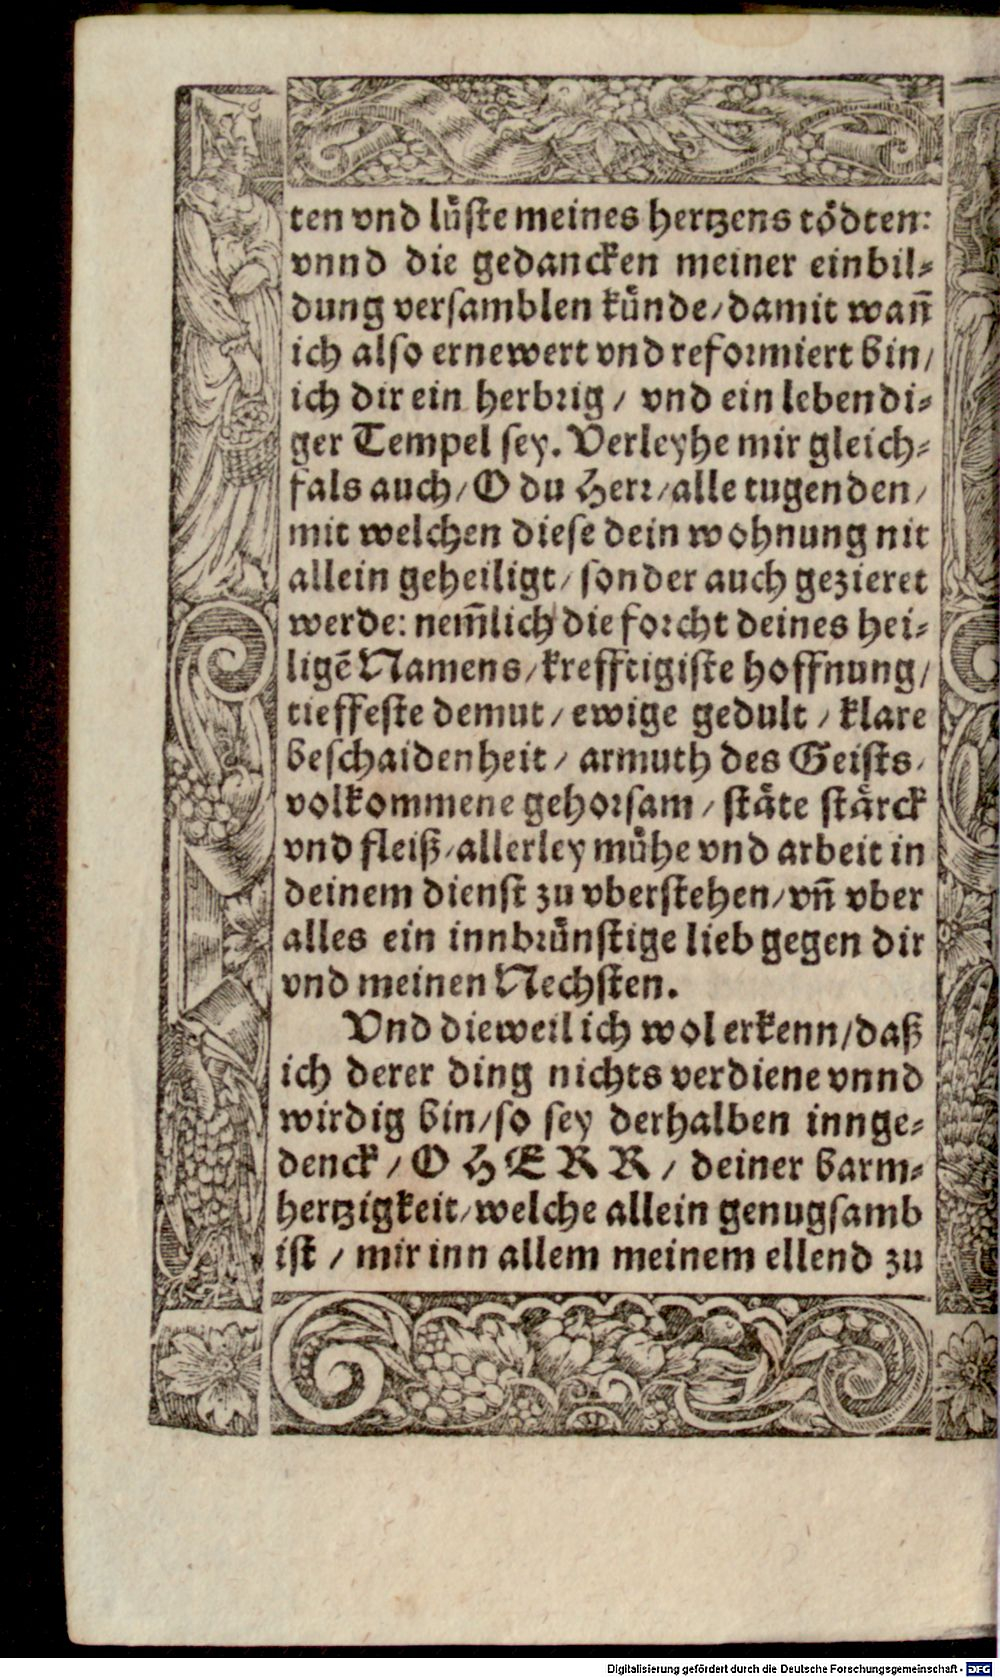 ten vnd lüste meines hertzens tödten:
vnnd die gedancken meiner einbil⸗
dung versamblen künde/damit wañ
ich also ernewert vnd reformiert bin/
ich dir ein herbrig / vnd ein lebendi⸗
ger Tempel sey. Verleyhe mir gleich⸗
fals auch/O du Herr/alle tugenden/
mit welchen diese dein wohnung nit
allein geheiligt/sonder auch gezieret
werde: nem̃lich die forcht deines hei⸗
ligẽ Namens/krefftigiste hoffnung/
tieffeste demut/ewige gedult / klare
beschaidenheit / armuth des Geists/
volkommene gehorsam / stäte stärck
vnd fleiß/allerley mühe vnd arbeit in
deinem dienst zu vberstehen/vñ vber
alles ein innbrünstige lieb gegen dir
vnd meinen Nechsten.
Vnd dieweil ich wol erkenn/daß
ich derer ding nichts verdiene vnnd
wirdig bin/so sey derhalben innge⸗
denck / O HERR / deiner barm⸗
hertzigkeit/welche allein genugsamb
ist / mir inn allem meinem ellend zu
Digitalisierung gefördert durch die Deutsche Forschungsgemeinschaft - DFG